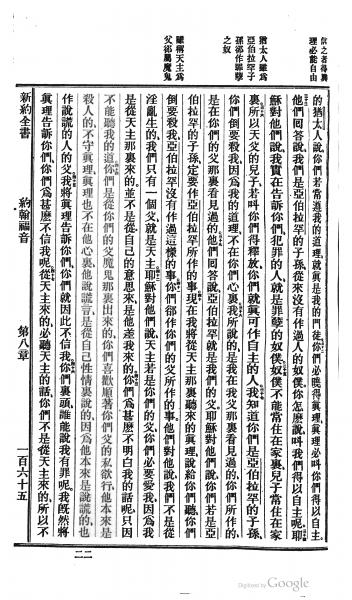 信之者得真
理必能自由
猶太人雖爲
亞伯拉罕子
孫卻作罪孽
之奴
雖稱天主爲
父卻屬魔鬼
的猶太人說、你們若常遵我的道理、就眞是我的門徒、你們必曉得眞理、眞理必叫你們得以自主、
他們回答說、我們是亞伯拉罕的子孫、從來沒有作過人的奴僕、你怎麽說、叫我們得以自主呢、耶
穌對他們說、我實在告訴你們、犯罪的人、就是罪孽的奴僕、奴僕不能常住在家裏、兒子常住在家
裏、所以天父的兒子、若叫你們得釋放、你們就眞可作自主的人、我知道你們是亞伯拉罕的子孫、
你們倒要殺我、因爲我的道理、不在你們心裏、我所說的、是我在我父那裏看見過的、你們所作的、
是在你們的父那裏看見過的、他們回答說、亞伯拉罕就是我們的父、耶穌對他們說、你們若是亞
伯拉罕的子孫、定要作亞伯拉罕所作的事、現在我將從天主那裏聽來的眞理、說給你們聽、你們
倒要殺我、亞伯拉罕沒有作過這樣的事、你們卻作你們的父所作的事、他們對他說、我們不是從
淫亂生的、我們只有一個父、就是天主、耶穌對他們說、天主若是你們的父、你們必要愛我、因爲我
是從天主那裏來的、並不是從自己的意思來、是他差我來的、你們爲甚麽不明白我的話呢、只因
不能聽我的道、你們是從你們的父魔鬼那裏出來的、你們喜歡順著你們父的私欲行、他本來是
殺人的、不守眞理、眞理也不在他心裏、他說謊言、是從自己性情裏說的、因爲他本來是說謊的、也
作說謊的人的父、我將眞理告訴你們、你們就因此不信我、你們裏頭、誰能說我有罪呢、我旣然將
眞理告訴你們、你們爲甚麽不信我呢、從天主來的、必聽天主的話、你們不是從天主來的、所以不
新約全書　約翰福音　第八章　一百六十五
二二
Digitized by Google